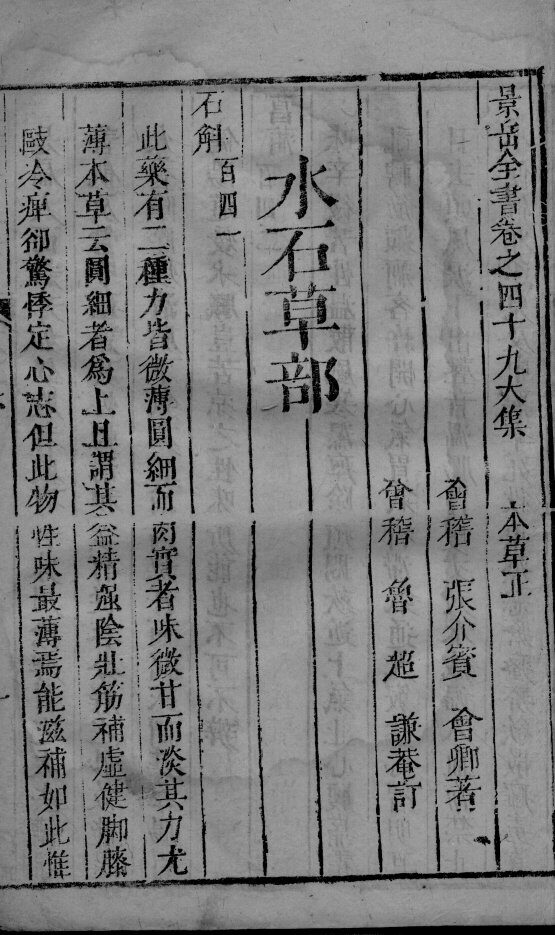 景岳全書卷之四十九大集 本草正
會稽 張介賓 會卿著
會稽 魯超 謙菴訂
水石草部
石斛百四一
此藥有二種力皆微薄圓細而肉實者味微甘而淡其力尤
薄本草云圓細者爲上且謂其益精强陰壯筋補虛健脚膝
歐冷痺却驚悸定心志但此物性味最薄焉能滋補如此惟